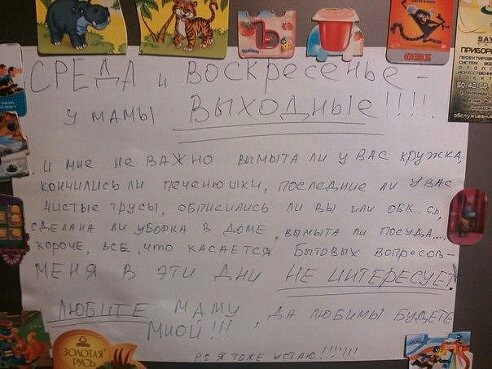 СРЕДА и ВОСКРЕСЕНЬЕ -
У МАМЫ ВЫХОДНЫЕ!!!!
И мне не ВАЖНО ВЫМЫТА ЛИ У ВАС КРУЖКА,
кончились ли печенюшки, последние ли у вас
чистые трусы, описились ли вы или обк..сь,
сделана ли уборка в доме, вымыта ли посуда...
короче, всё, что касается бытовых вопросов-
МЕНЯ В ЭТИ ДНИ НЕ ИНТЕРЕСУЕТ
ЛЮБИТЕ МАМУ, ДА ЛЮБИМЫ БУДЕТЕ
МНОЙ!!!
PS Я ТОЖЕ УСТАЮ!!!!!!
ЗОЛОТАЯ
РУСЬ